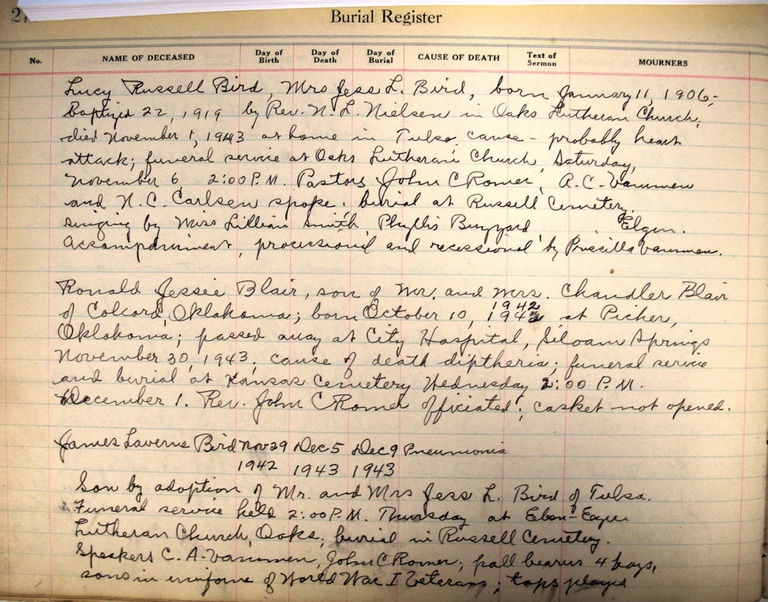 2
Burial Register
No. NAME OF DECEASED Day of Birth Day of Death Day of Burial CAUSE OF DEATH Text of Sermon MOURNERS
Lucy Russell Bird, Mrs Jess L. Bird, born January 11, 1906;
baptized 22, 1919 by Rev. N. L. Nielsen in Oaks Lutheran Church;
died November 1, 1943 at home in Tulsa, cause - probably heart
attack; funeral service at Oaks Lutheran Church, Saturday,
November 6 2:00 P.M. Pastors John C Romer, A. C. Vammen
and N. C. Carlsen spoke. burial at Russell Cemetery.
singing by Miss Lillian Smith, Phyllis Buzzard, Elgin.
Accompaniment, processional and recessional by Priscilla Vammen.
Ronald Jessie Blair, son of Mr. and Mrs. Chandler Blair
of Colcord, Oklahoma; born October 10, 1942 1942 at Picher,
Oklahoma; passed away at City Hospital, Siloam Springs
November 30, 1943; cause of death diptheria; funeral service
and burial at Kansas Cemetery Wednesday 2:00 P.M.
December 1. Rev. John C Romer officiated; casket not opened.
James Laverne Bird Nov 29 Dec 5 Dec 9 Pneumonia
1942 1943 1943
Son by adoption of Mr. and Mrs Jess L. Bird of Tulsa.
Funeral service held 2:00 P.M. Thursday at Eben-Ezer
Lutheran Church, Oaks; burial in Russell Cemetery.
Speakers C. A. Vammen, John C Romer; pall bearers 4 boys,
sons in uniform of World War I Veterans; taps played